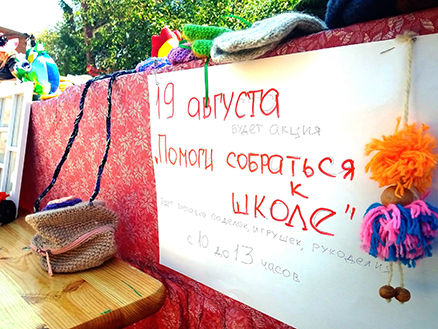 19 августа
будет акция
„Помоги собраться
к
школе"
поделок, игрушек, рукоделия
с 10 до 13 часов